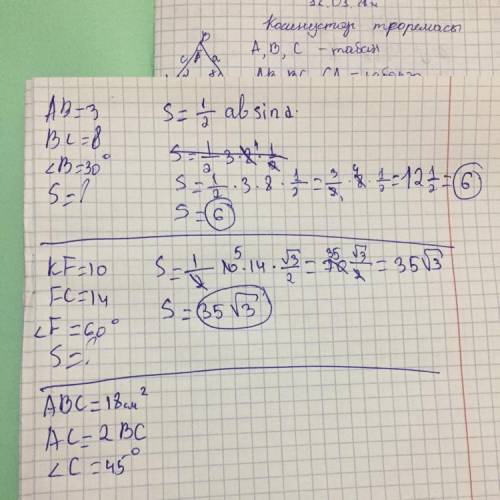 Косинустар теоремасы
A, B, C – табан
AB=3
BC=8
∠B=30°
S=?
S=1/2 ab sin α
S=1/2 · 3 · 8 · 1/2
S=1/2 · 3 · 8 · 1/2 = 3/2 · 8 · 1/2 = 12 1/2 = 6
S=6
KF=10
FC=14
∠F=60°
S=?
S=1/2 · 10 · 14 · √3/2 = 70 √3/2 = 35√3
S=35√3
ABC=18см²
AC=2BC
∠C=45°